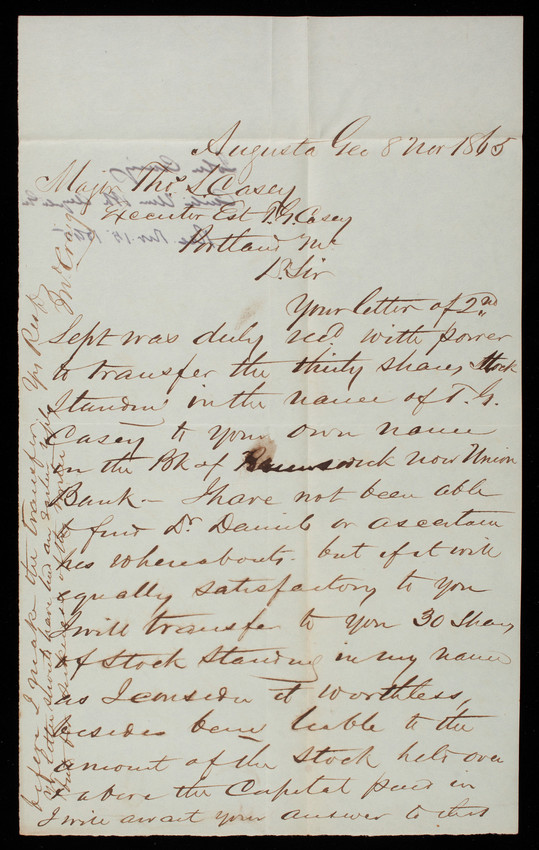 Augusta Geo 8 Nov 1865
Major Thos L Casey
Executor Est T. G. Casey
Portland Me
Dr Sir
Your letter of 2nd
Sept was duly recd with power
to transfer the thirty shares Stock
Standin in the name of T. G.
Casey to your own name
in the Bk of Brunswick now Union
Bank - I have not been able
to find Dr Daniels or ascertain
his whereabouts - but if it will
equally satisfactory to you
I will transfer to you 30 Shares
of Stock Standing in my name
as I consider it worthless,
besides bein liable to the
amount of the Stock held over
& above the Capital paid in
I will await your answer to this
before I make the transfer. Yr Rect
Jno Craig
Yr letter should have had an earlier reply
Nov. 18. 1865